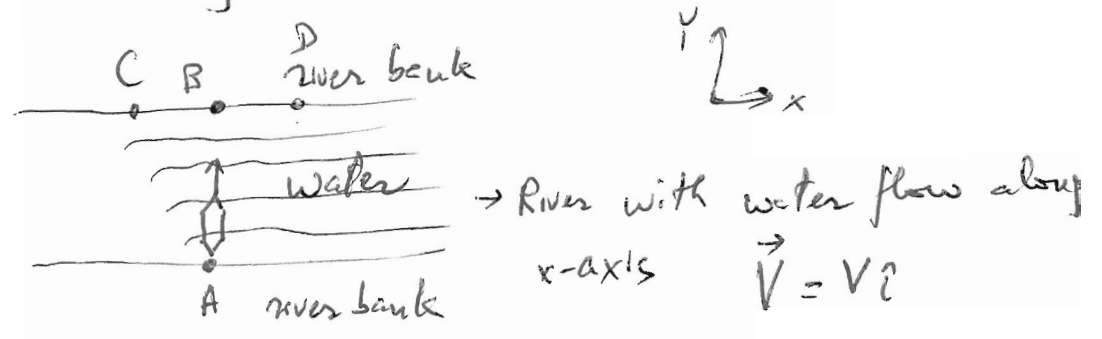 C B D
river bank
Y
x
water
→ River with water flow along
x-axis V⃗ = V î
A river bank